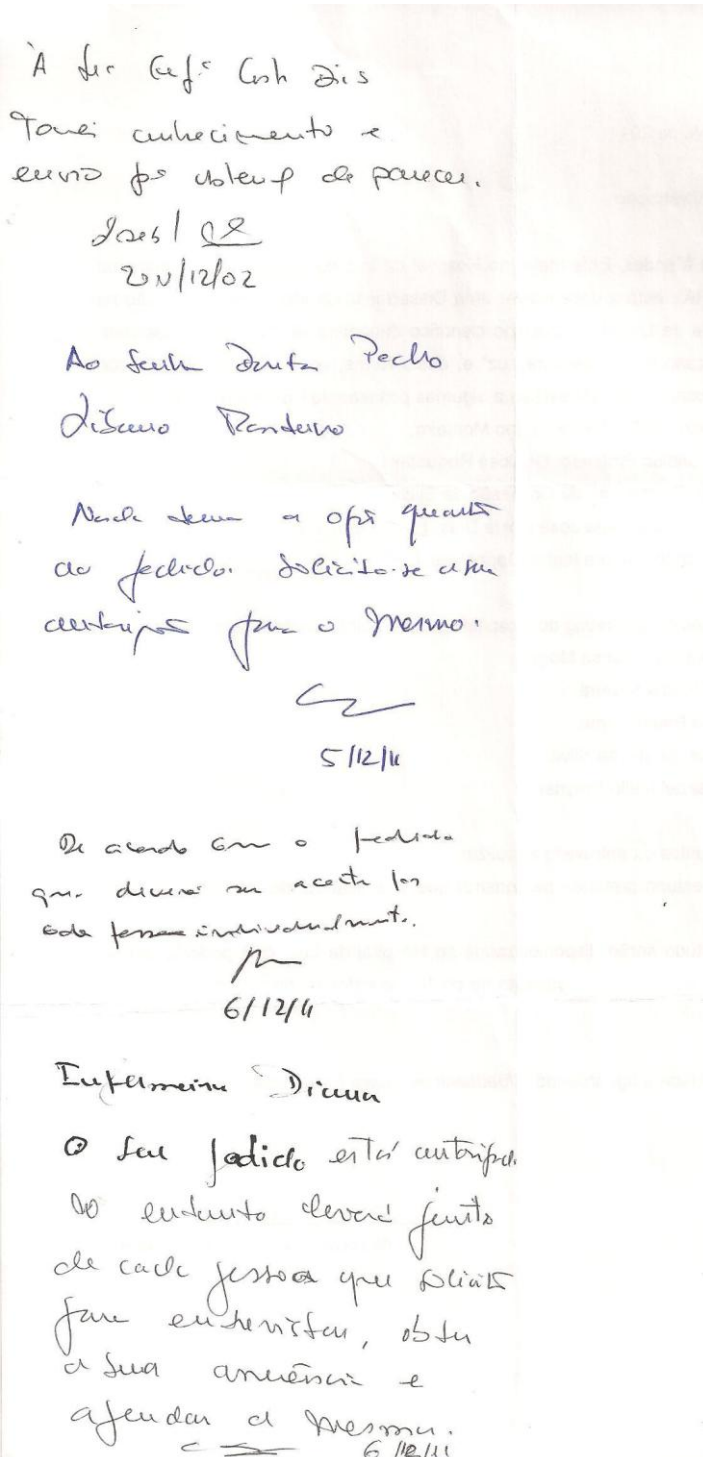 À
Tomei conhecimento e
envio de parecer.
/12/02
Ao Senhor Doutor Pedro
Nada tenho a opôr quanto
ao pedido. Solicita-se a sua
autorização para o mesmo.
5/12/11
De acordo com o pedido
que deverá ser aceite por
cada pessoa individualmente.
6/12/11
Enfermeira Diana
O seu pedido está autorizado.
No entanto deverá junto
de cada pessoa que solicita
para entrevistar, obter
a sua anuência e
agendar a mesma.
6/12/11